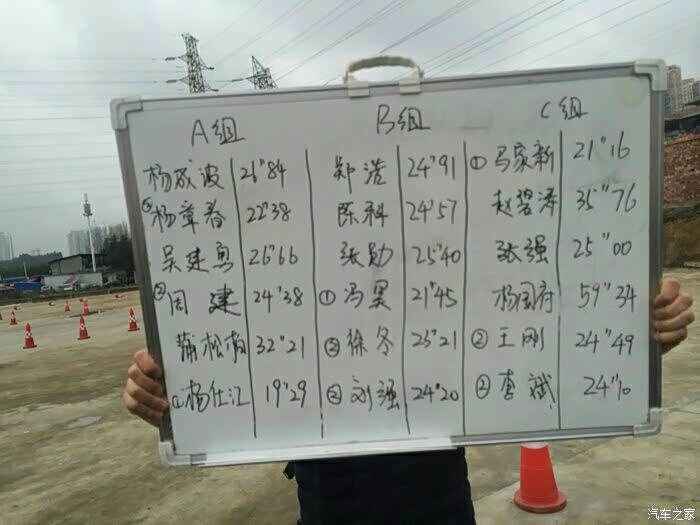 A组 B组 C组
杨成波 21"84 郑浩 24"91 ① 马家新 21"16
杨章春 22"38 陈科 24"57 赵碧涛 35"76
吴建 26"66 张勋 25"40 张强 25"00
周建 24"38 ① 冯昊 21"45 杨国府 59"34
蒲松 32"21 徐冬 23"21 ② 王刚 24"49
① 杨仕江 19"29 ② 刘强 24"20 李斌 24"10
汽车之家